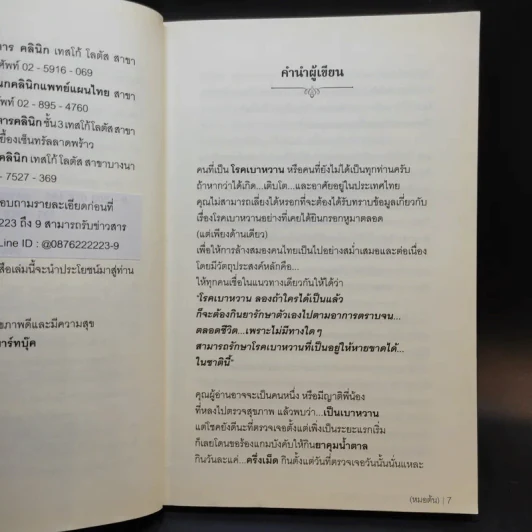 าร คลินิก เทสโก้ โลตัส สาขา
ศัพท์ 02 - 5916 - 069
นกคลินิกแพทย์แผนไทย สาขา
ศัพท์ 02 - 895 - 4760
ารคลินิก ชั้น 3 เทสโก้โลตัส สาขา
ยื้องเซ็นทรัลลาดพร้าว
คลินิก เทสโก้ โลตัส สาขาบางนา
- 7527 - 369
อบถามรายละเอียดก่อนที่
223 ถึง 9 สามารถรับข่าวสาร
Line ID : @0876222223-9
สือเล่มนี้จะนำประโยชน์มาสู่ท่าน
ขภาพดีและมีความสุข
าร์ทบุ๊ค
คำนำผู้เขียน
คนที่เป็น โรคเบาหวาน หรือคนที่ยังไม่ได้เป็นทุกท่านครับ
ถ้าหากว่าได้เกิด...เติบโต...และอาศัยอยู่ในประเทศไทย
คุณไม่สามารถเลี่ยงได้หรอกที่จะต้องได้รับทราบข้อมูลเกี่ยวกับ
เรื่องโรคเบาหวานอย่างที่เคยได้ยินกรอกหูมาตลอด
(แต่เพียงด้านเดียว)
เพื่อให้การล้างสมองคนไทยเป็นไปอย่างสม่ำเสมอและต่อเนื่อง
โดยมีวัตถุประสงค์หลักคือ...
ให้ทุกคนเชื่อในแนวทางเดียวกันให้ได้ว่า
"โรคเบาหวาน ลองถ้าใครได้เป็นแล้ว
ก็จะต้องกินยารักษาตัวเองไปตามอาการตราบจน...
ตลอดชีวิต...เพราะไม่มีทางใดๆ
สามารถรักษาโรคเบาหวานที่เป็นอยู่ให้หายขาดได้...
ในชาตินี้"
คุณผู้อ่านอาจจะเป็นคนหนึ่ง หรือมีญาติพี่น้อง
ที่หลงไปตรวจสุขภาพ แล้วพบว่า...เป็นเบาหวาน
แต่โชคยังดีนะที่ตรวจเจอตั้งแต่เพิ่งเป็นระยะแรกเริ่ม
ก็เลยโดนขอร้องแกมบังคับให้กินยาคุมน้ำตาล
กินวันละแค่...ครึ่งเม็ด กินตั้งแต่วันที่ตรวจเจอวันนั้นนั่นแหละ
(หมอต้น) | 7